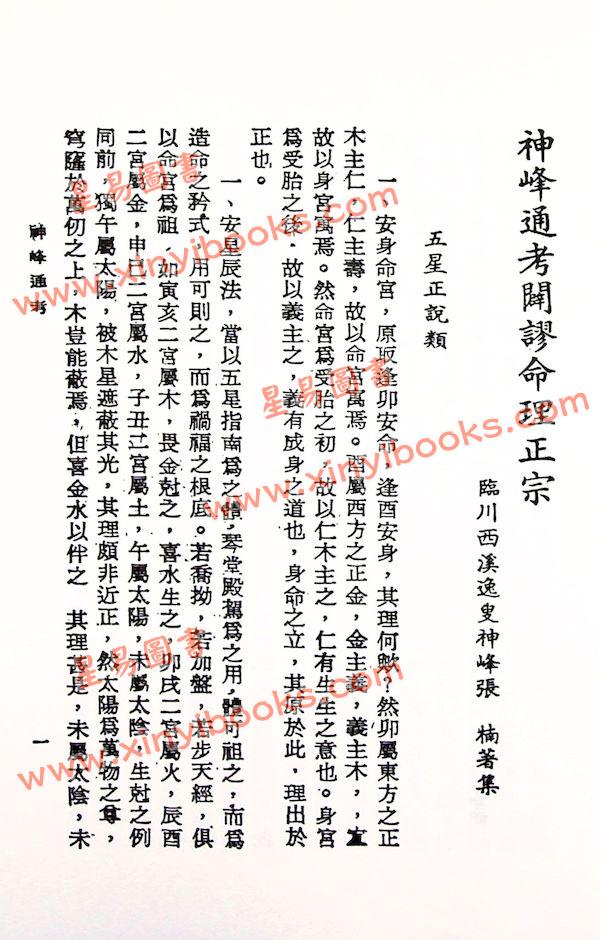 神峰通考闢謬命理正宗
臨川西溪逸叟神峰張　楠著集
五星正說類
一、安身命宮，原取逢卯安命，逢酉安身，其理何歟？然卯屬東方之正
木主仁，仁主壽，故以命宮寓焉。酉屬西方之正金，金主義，義主木，，宜
故以身宮寓焉。然命宮為受胎之初，故以仁木主之，仁有生生之意也。身宮
為受胎之後，故以義主之，義有成身之道也，身命之立，其原於此，理出於
正也。
一、安星辰法，當以五星指南為之體，琴堂殿駕為之用，體可祖之，而為
造命之矜式，用可則之，而為禍福之根底。若喬拗，若加盤，若步天經，俱
以命宮為祖，如寅亥二宮屬木，畏金尅之，喜水生之，卯戌二宮屬火，辰酉
二宮屬金，申巳二宮屬水，子丑二宮屬土，午屬太陽，未屬太陰，生尅之例
同前，獨午屬太陽，被木星遮蔽其光，其理頗非近正，然太陽為萬物之尊，
穹窿於萬仞之上，木豈能蔽焉，但喜金水以伴之　其理甚是，未屬太陰，未
神峰通考
一
星易圖書
www.xinyibooks.com
星易圖書
www.xinyibooks.com
星易圖書
www.xinyibooks.com